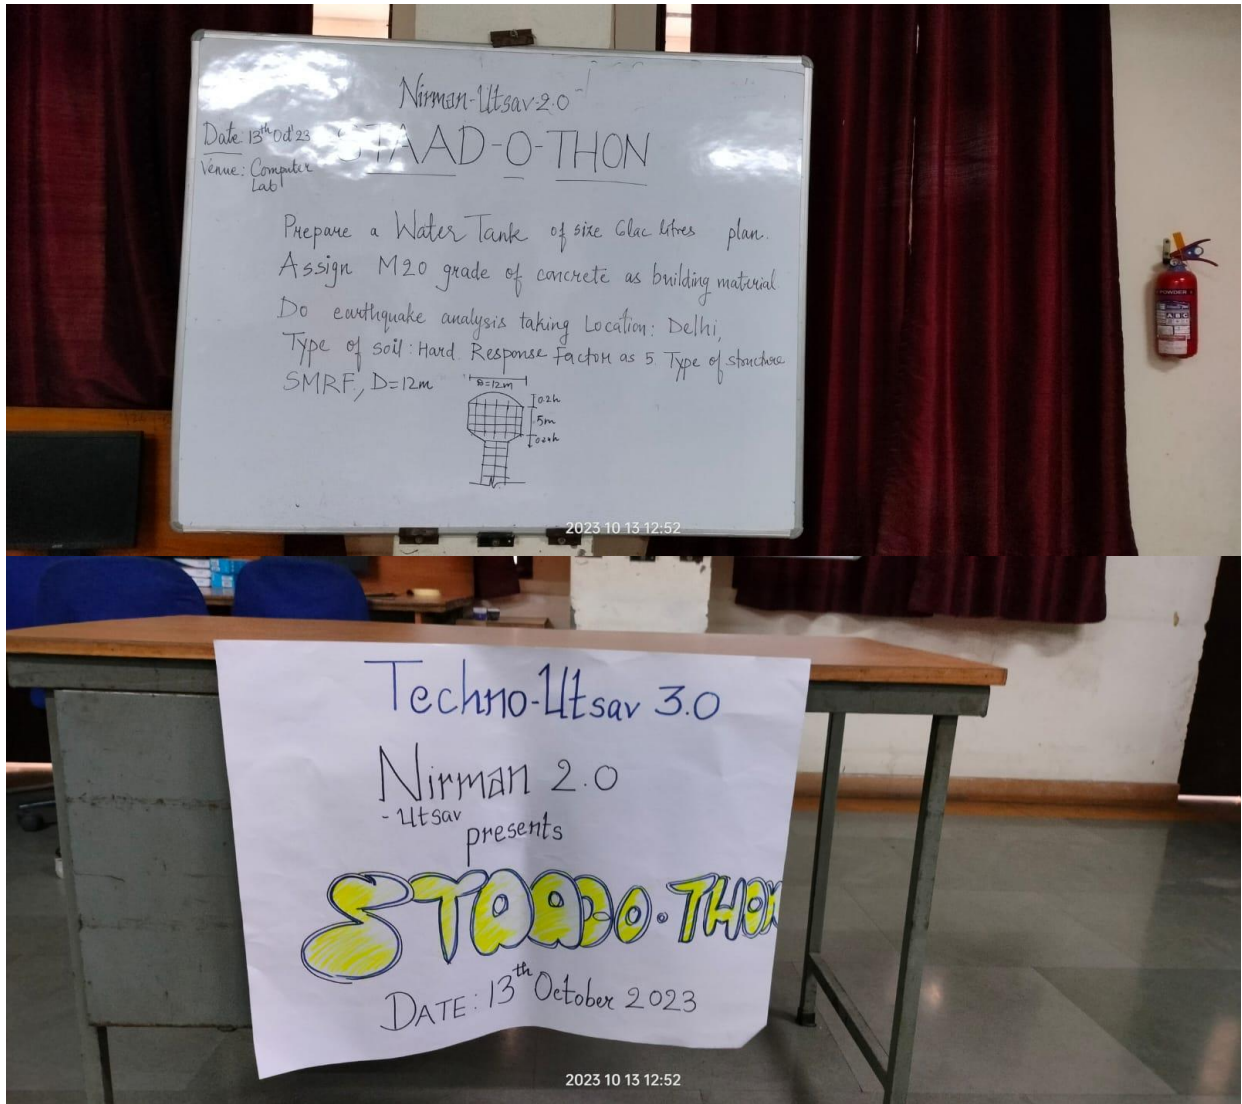 Nirman-Utsav-2.0
STAAD-O-THON
Date: 13th Oct'23
Venue: Computer
Lab
Prepare a Water Tank of size 6lac litres plan.
Assign M20 grade of concrete as building material.
Do earthquake analysis taking Location: Delhi,
Type of soil: Hard. Response Factor as 5. Type of structure
SMRF, D=12m
D=12m
0.2h
5m
0.2h
2023 10 13 12:52
POWDER
ABC
Techno-Utsav 3.0
Nirman 2.0
-Utsav
presents
STAAD-O-THON
DATE: 13th October 2023
2023 10 13 12:52